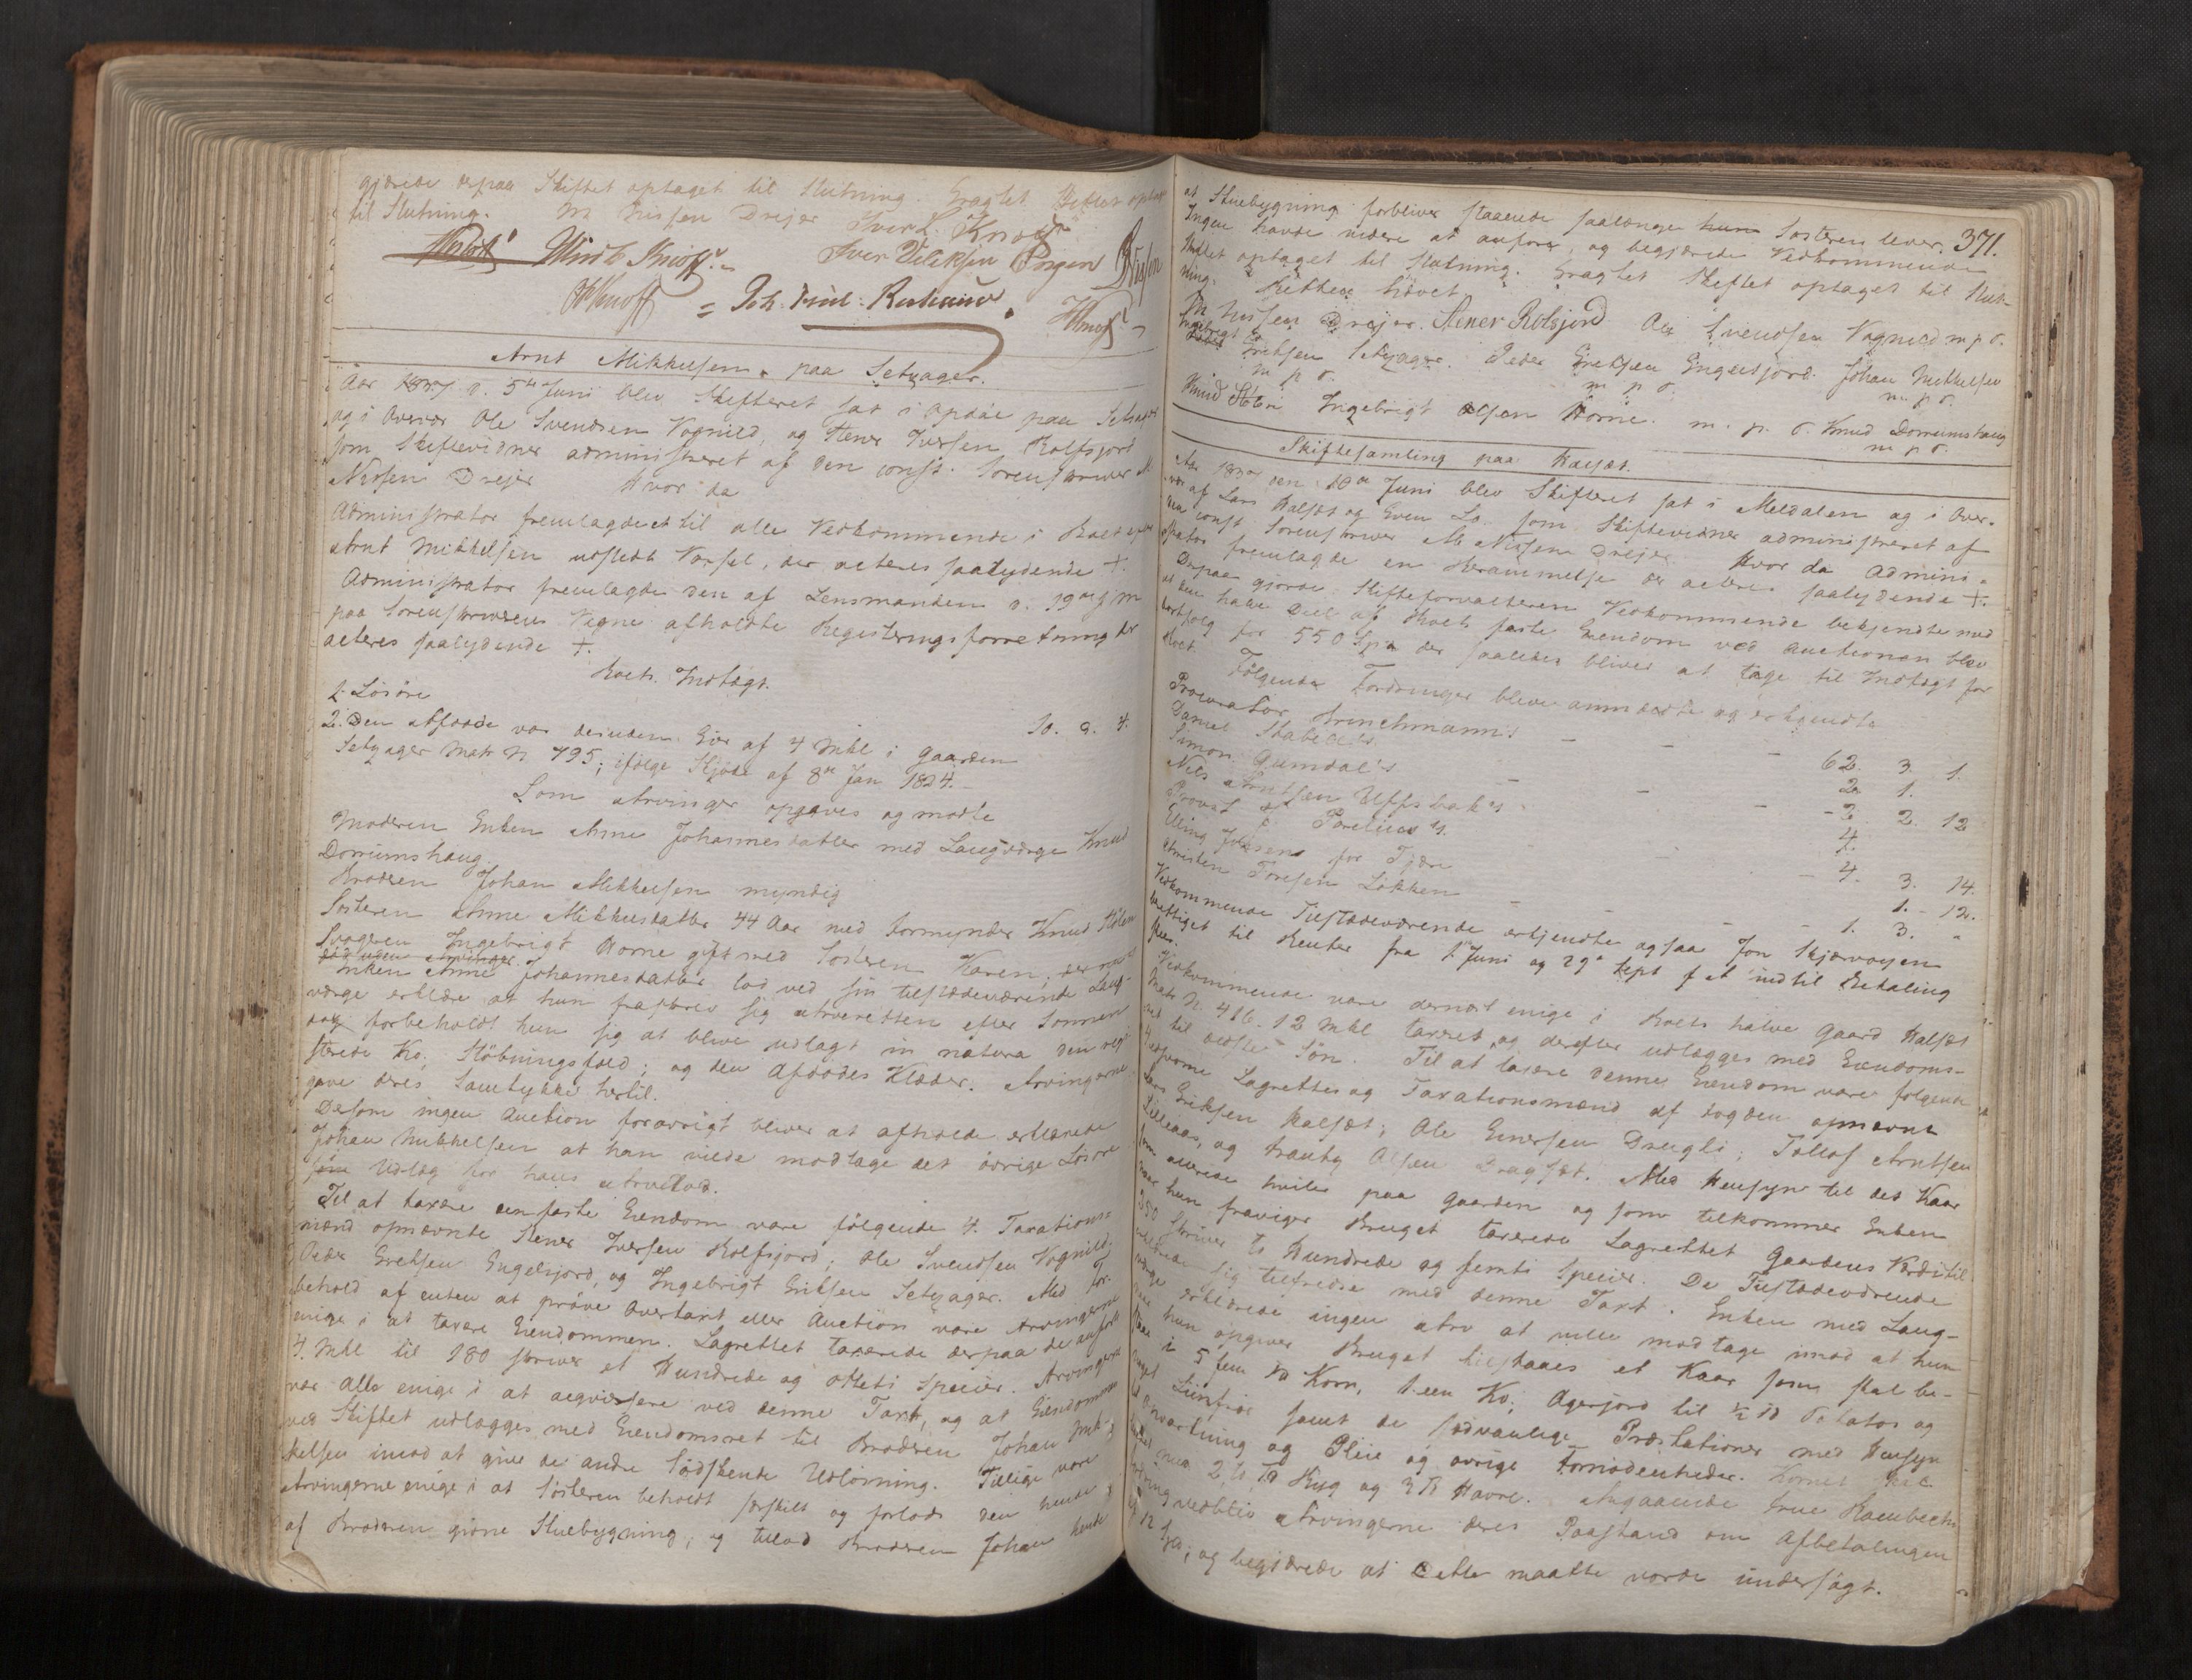 gjærede derpaa Skiftet optaget til Slutning. Eragtet Skiftet optaget
til Slutning. M Nissen Drejer Iver L. Knoff
Iver Dileksen Jørgen
Joh. Frid:
Arnt Mikkelsen paa Setsager.
Aar 1837 d. 5te Juni blev Skifteret sat i Opdal paa Setsager
og i Overvær Ole Svendsen Vognild, og Stener Iversen Rolfsjord
som Skiftevidner administreret af den const. Sorenskriver M.
Nissen Drejer Hvor da
Administrator fremlagde et til alle Vedkommende i Boet efter
Arnt Mikkelsen udstedt Varsel, der acteres saalydende +.
Administrator fremlagde den af Lensmanden d. 19de
paa Sorenskriverens Vegne afholdte Registreringsforretning der
acteres saalydende +.
Boets Indtægt.
1. Løsøre 10. 2. 4.
2. Den Afdøde var desuden Eier af 4 Mkl i Gaarden
Setsager Matr N 795, ifølge Skjøde af 8de Jan 1824.
Som Arvinger opgaves og mødte
Moderen Enken Anne Johannesdatter med Laugværge Knud
Dorrumshaug.
Broderen Johan Mikkelsen myndig
Søsteren Anne Mikkelsdatter 44 Aar med Formynder Knud Stølen
Svogeren Ingebrigt Horne gift med Søsteren Karen, der
død uden Arvinger.
Enken Anne Johannesdatter lod ved sin tilstædeværende Laug-
værge erklære at hun frafalder sig Arveretten efter Sønnen
dog forbeholdt hun sig at blive udlagt in natura den regi-
strede Ko, Støbningskold; og den Afdødes Klæder. Arvingerne
gave deres Samtykke hertil.
Dersom ingen Auction forøvrigt bliver at afholde erklærede
Johan Mikkelsen at han vilde modtage det øvrige Løsøre
som Udlæg for hans Arvelod.
Til at taxere den faste Eiendom vare følgende 4. Taxations-
mænd opnævnte Stener Iversen Rolfsjord; Ole Svendsen Vognild;
Peder Eriksen Engelsjord, og Ingebrigt Eriksen Setsager. Med For-
behold af enten at prøve Overtaxt eller Auction vare Arvingerne
enige i at taxere Eiendommen. Lagrettet taxerede derpaa de anførte
4. Mkl til 180 skriver et Hundrede og otteti Specier. Arvingerne
var alle enige i at acqviescere ved denne Taxt, og at Eiendommen
ved Skiftet udlægges med Eiendomsret til Broderen Johan Mik-
kelsen imod at give de andre Sødskende Udløsning. Tillige vare
Arvingerne enige i at Søsteren beholdt særskilt og forlods den hende
af Broderen givne Stuebygning; og tillod Broderen Johan hende
371.
at Stuebygning forbliver staaende saalænge hun Søsteren lever.
Ingen havde videre at anføre, og begjærede Vedkommende
Skiftet optaget til Slutning. Eragtet Skiftet optaget til Slut-
ning. Retten hævet
M Nissen Drejer. Stener Rolsjord Ole Svendsen Vognild m p o.
Ingebrigt Eriksen Setsager. Peder Eriksen Engelsjord. Johan Mikkelsen
m p o. m p o. m. p o.
Knud Stølen Ingebrigt Olsen Horne. m. p. o. Knud Dorrumshaug
m p o.
Skiftesamling paa Kalsæt.
Aar 1837 den 10de Juni blev Skifteret sat i Meldalen og i Over-
vær af Lars Kalsæt og Even Lo. som Skiftevidner administreret af
den const Sorenskriver M Nissen Drejer Hvor da Admini-
strator fremlagde en Berammelse der acteres saalydende +.
Derpaa gjorde Skifteforvalteren Vedkommende bekjendte med
at den halve Deel af Boets faste Eiendom ved Auctionen blev
bortsolg for 550 Spd der saaledes bliver at tage til Indtægt for
Boet.
Følgende Fordringer bleve anmældte og erkjendte
Procurator Brinchmann's - - - 62. 3. 1.
Daniel Stabell's - - 2 1.
Simon Gumdal's - - 3 2. 12
Nils Arntsen Uffsbak's - 4.
Provst F. Parelius's - - 4. 3. 14.
Elling Iversens for Tjære 1. - 12.
Christen Toresen Løkken - - - 1. 3. "
Vedkommende Tilstædeværende erkjendte ogsaa Jon Skjærvoyen
berettiget til Renter fra 1. Juni og 29de Sept f A indtil Betaling
skeer.
Vedkommende vare dernæst enige i Boets halve Gaard Kalsæt
Matr N. 416. 12 Mkl taxeret, og derefter udlægges med Eiendoms-
ret til ældste Søn. Til at taxere denne Eiendom vare følgende
4 edsvorne Lagrettes og Taxationsmænd af Fogden opnævnt
Lars Eriksen Kalsæt; Ole Einersen Drugli; Tollof Arntsen
Lilleaas, og Trønty Olsen Dragsæt. Med Hensyn til det Kaar
som allerede hviler paa Gaarden og som tilkommer Enken
naar hun fraviger Bruget taxerede Lagrettet Gaardens Værdi til
250 skriver to Hundrede og femti Specier. De Tilstædeværende
erklærede sig tilfredse med denne Taxt. Enken med Laug-
værge erklærede ingen Arv at ville modtage imod at hun
naar hun opgiver Bruget tilstaaes et Kaar som skal be-
staae i 5 fem Td Korn, 1 een Ko, Agerjord til ½ Td Potatos og
noget Liinfrø samt de sædvanlige Præstationer med Hensyn
til Opvartning og Pleie og øvrige Fornødenheder. Kornet
med 2. Td Byg og 3 Td Havre. Angaaende Frue Rambechs
Fordring vedblev Arvingerne deres Paastand om Afbetalingen
af 12 Spd; og begjærede at dette maatte vorde undersøgt.